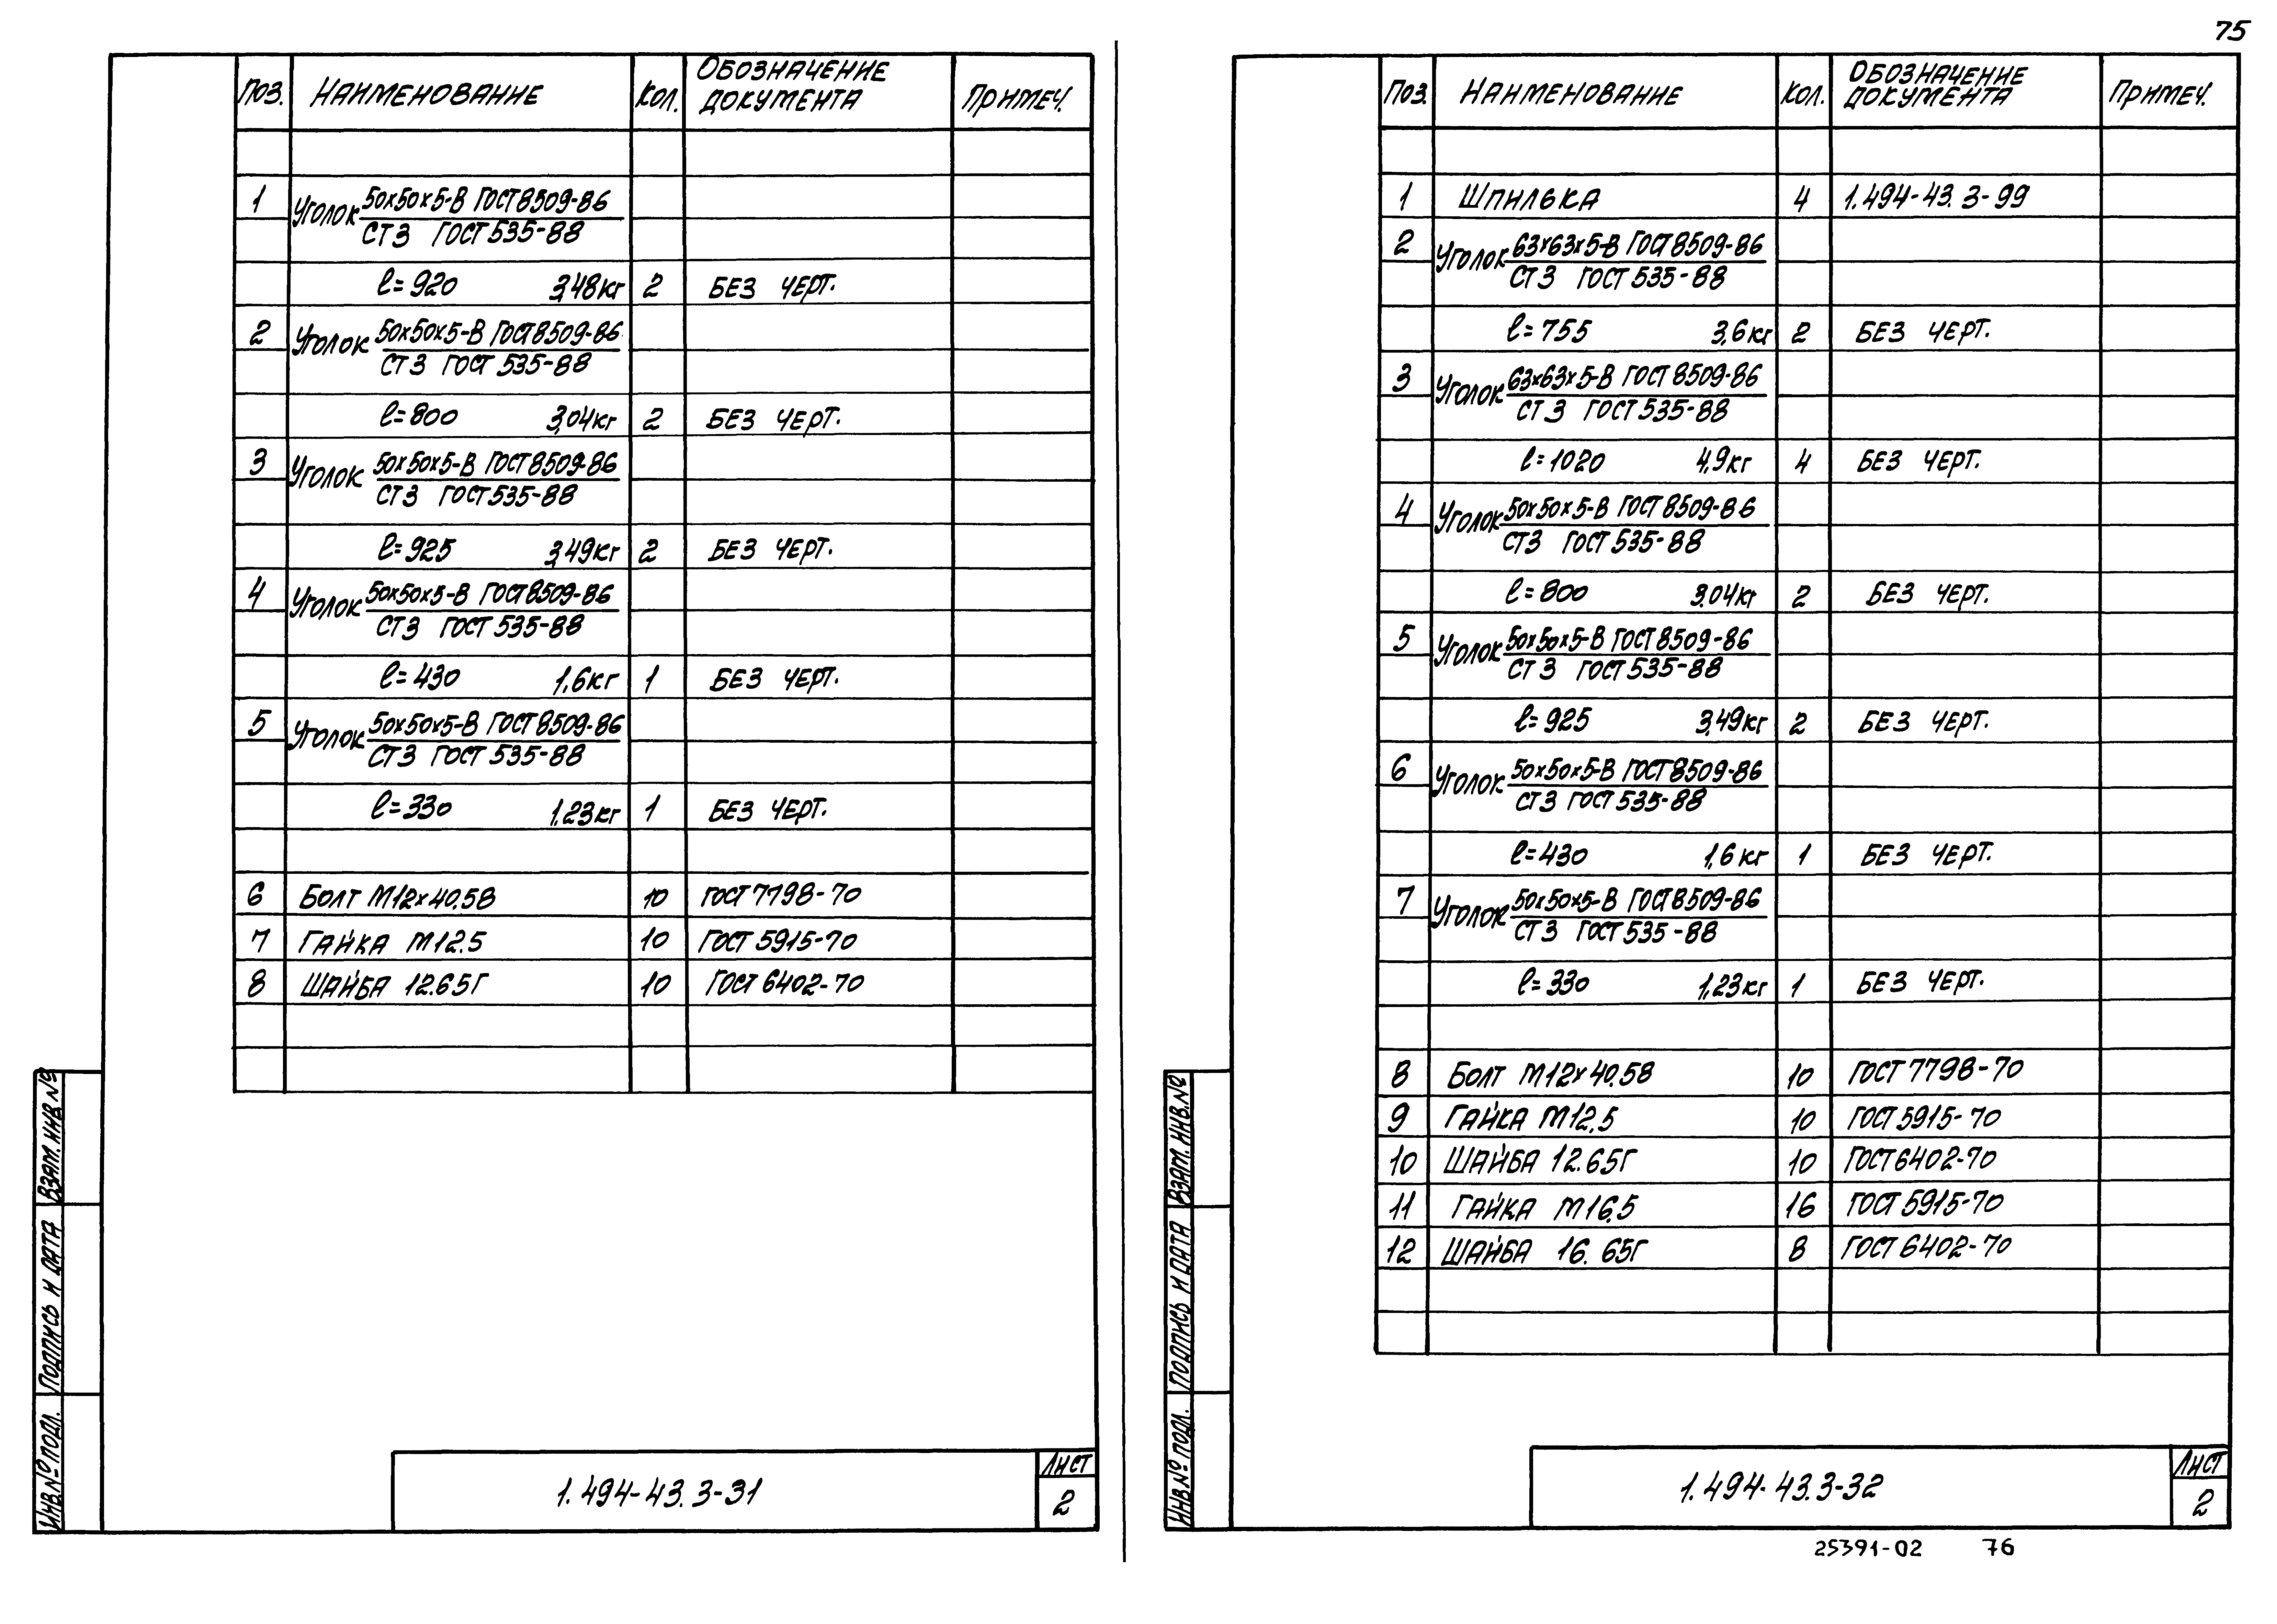 75
Поз. Наименование Кол. Обозначение документа Примеч.
1 Уголок 50х50х5-В ГОСТ 8509-86
Ст 3 ГОСТ 535-88
ℓ=920 3,48кг 2 Без черт.
2 Уголок 50х50х5-В ГОСТ 8509-86
Ст 3 ГОСТ 535-88
ℓ=800 3,04кг 2 Без черт.
3 Уголок 50х50х5-В ГОСТ 8509-86
Ст 3 ГОСТ 535-88
ℓ=925 3,49кг 2 Без черт.
4 Уголок 50х50х5-В ГОСТ 8509-86
Ст 3 ГОСТ 535-88
ℓ=430 1,6кг 1 Без черт.
5 Уголок 50х50х5-В ГОСТ 8509-86
Ст 3 ГОСТ 535-88
ℓ=330 1,23кг 1 Без черт.
6 Болт М12х40.58 10 ГОСТ 7798-70
7 Гайка М12.5 10 ГОСТ 5915-70
8 Шайба 12.65Г 10 ГОСТ 6402-70
Взам. инв. №
Подпись и дата
Инв. № подл.
1.494-43.3-31
Лист
2
Поз. Наименование Кол. Обозначение документа Примеч.
1 Шпилька 4 1.494-43.3-99
2 Уголок 63х63х5-В ГОСТ 8509-86
Ст 3 ГОСТ 535-88
ℓ=755 3,6кг 2 Без черт.
3 Уголок 63х63х5-В ГОСТ 8509-86
Ст 3 ГОСТ 535-88
ℓ=1020 4,9кг 4 Без черт.
4 Уголок 50х50х5-В ГОСТ 8509-86
Ст 3 ГОСТ 535-88
ℓ=800 3.04кг 2 Без черт.
5 Уголок 50х50х5-В ГОСТ 8509-86
Ст 3 ГОСТ 535-88
ℓ=925 3,49кг 2 Без черт.
6 Уголок 50х50х5-В ГОСТ 8509-86
Ст 3 ГОСТ 535-88
ℓ=430 1,6кг 1 Без черт.
7 Уголок 50х50х5-В ГОСТ 8509-86
Ст 3 ГОСТ 535-88
ℓ=330 1,23кг 1 Без черт.
8 Болт М12х40.58 10 ГОСТ 7798-70
9 Гайка М12.5 10 ГОСТ 5915-70
10 Шайба 12.65Г 10 ГОСТ 6402-70
11 Гайка М16.5 16 ГОСТ 5915-70
12 Шайба 16.65Г 8 ГОСТ 6402-70
Взам. инв. №
Подпись и дата
Инв. № подл.
1.494-43.3-32
Лист
2
25391-02 76